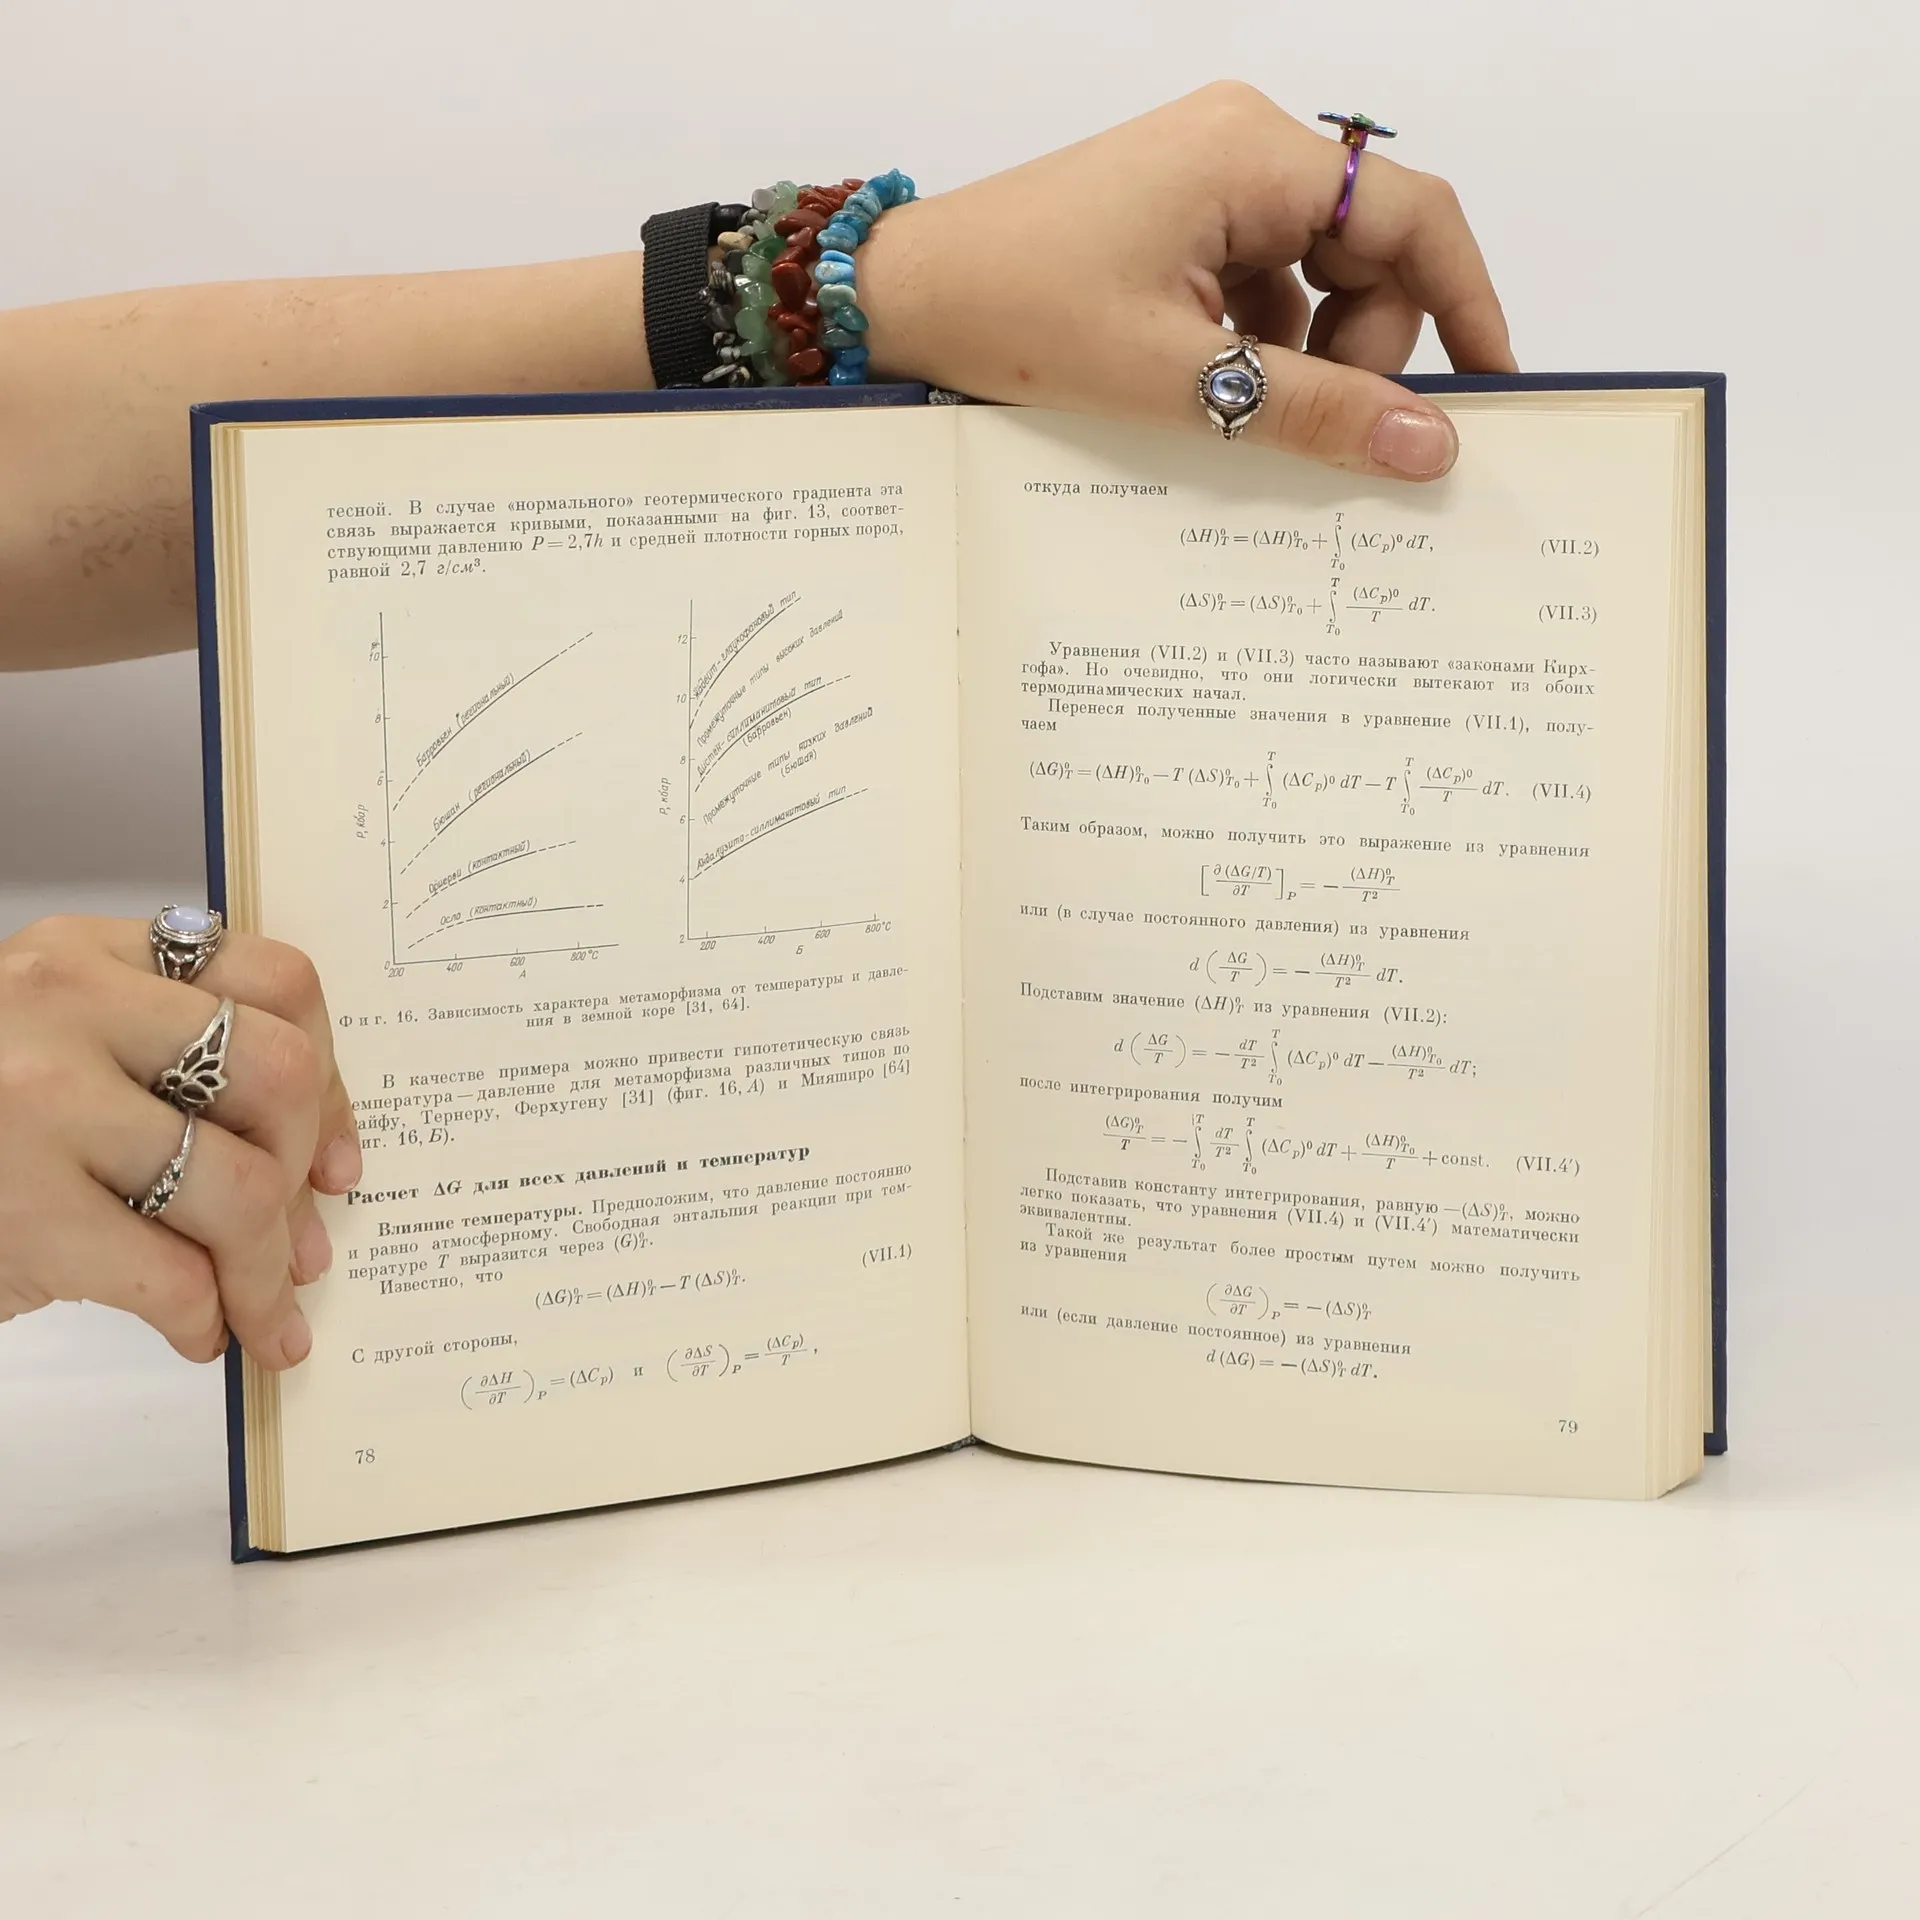 тесной. В случае «нормального» геотермического градиента эта
связь выражается кривыми, показанными на фиг. 13, соответ-
ствующими давлению P=2,7h и средней плотности горных пород,
равной 2,7 г/см³.
10
8
6
4
2
0
P, кбар
Барровьен (региональный)
Бюшан (региональный)
(контактный)
Осло (контактный)
200
400
600
800°C
А
12
10
8
6
4
2
P, кбар
глаукофановый тип
Промежуточные типы высоких давлений
Дистен-силлиманитовый тип
(Барровьен)
Промежуточные типы низких давлений
(Бюшан)
Андалузито-силлиманитовый тип
200
400
600
800°C
Б
Фиг. 16. Зависимость характера метаморфизма от температуры и давле-
ния в земной коре [31, 64].
В качестве примера можно привести гипотетическую связь
емпература — давление для метаморфизма различных типов по
айфу, Тернеру, Ферхугену [31] (фиг. 16, А) и Мияширо [64]
иг. 16, Б).
Расчет ΔG для всех давлений и температур
Влияние температуры. Предположим, что давление постоянно
и равно атмосферному. Свободная энтальпия реакции при тем-
пературе T выразится через (G)⁰_T.
Известно, что
(ΔG)⁰_T = (ΔH)⁰_T — T (ΔS)⁰_T. (VII.1)
С другой стороны,
(∂ΔH/∂T)_P = (ΔC_p) и (∂ΔS/∂T)_P = (ΔC_p)/T ,
78
откуда получаем
(ΔH)⁰_T = (ΔH)⁰_T₀ + ∫_T₀^T (ΔC_p)⁰ dT, (VII.2)
(ΔS)⁰_T = (ΔS)⁰_T₀ + ∫_T₀^T (ΔC_p)⁰/T dT. (VII.3)
Уравнения (VII.2) и (VII.3) часто называют «законами Кирх-
гофа». Но очевидно, что они логически вытекают из обоих
термодинамических начал.
Перенеся полученные значения в уравнение (VII.1), полу-
чаем
(ΔG)⁰_T = (ΔH)⁰_T₀ — T (ΔS)⁰_T₀ + ∫_T₀^T (ΔC_p)⁰ dT — T ∫_T₀^T (ΔC_p)⁰/T dT. (VII.4)
Таким образом, можно получить это выражение из уравнения
[∂(ΔG/T)/∂T]_P = — (ΔH)⁰_T/T²
или (в случае постоянного давления) из уравнения
d (ΔG/T) = — (ΔH)⁰_T/T² dT.
Подставим значение (ΔH)⁰_T из уравнения (VII.2):
d (ΔG/T) = — dT/T² ∫_T₀^T (ΔC_p)⁰ dT — (ΔH)⁰_T₀/T² dT;
после интегрирования получим
(ΔG)⁰_T/T = — ∫_T₀^T dT/T² ∫_T₀^T (ΔC_p)⁰ dT + (ΔH)⁰_T₀/T + const. (VII.4′)
Подставив константу интегрирования, равную —(ΔS)⁰_T, можно
легко показать, что уравнения (VII.4) и (VII.4′) математически
эквивалентны.
Такой же результат более простым путем можно получить
из уравнения
(∂ΔG/∂T)_P = — (ΔS)⁰_T
или (если давление постоянное) из уравнения
d (ΔG) = — (ΔS)⁰_T dT.
79